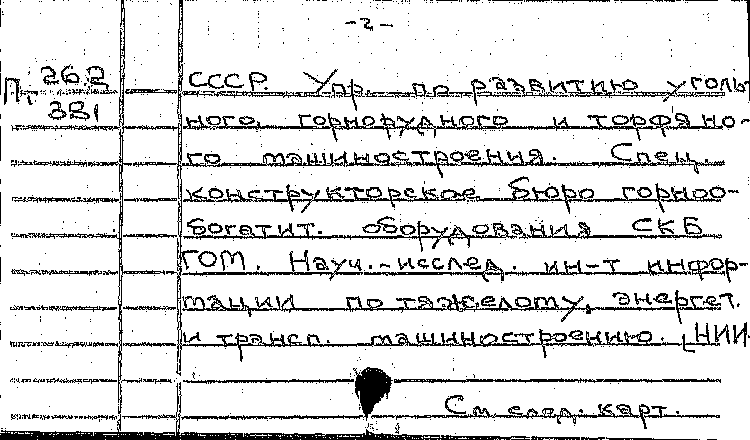 -2-
Пт 262
381
СССР. Упр. по развитию уголь
ного, горнорудного и торфяно-
го машиностроения. Спец.
конструкторское бюро горноо-
богатит. оборудования СКБ
ГОМ. Науч.-исслед. ин-т инфор-
мации по тяжелому, энергет.
и трансп. машиностроению. [НИИ
См след. карт.